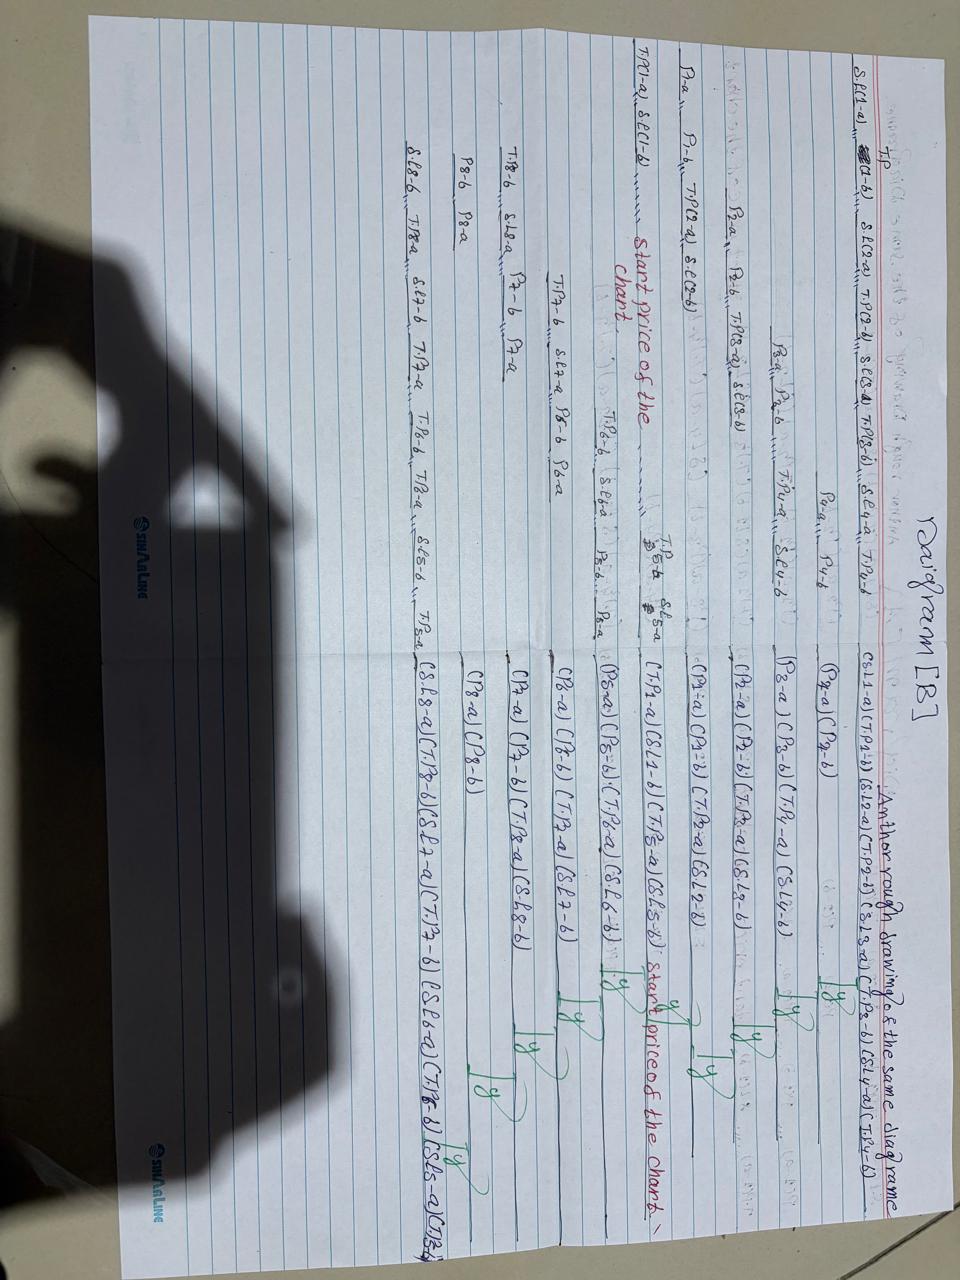 Daigram [B]
Anthor rough drawing of the same diagrame
S.L(1-a) T.P (1-b) S.L(2-a) T.P(2-b) S.L(3-a) T.P(3-b) S.L4-a T.P4-b
(S.L1-a)(T.P1-b)(S.L2-a)(T.P2-b)(S.L3-a)(T.P3-b)(S.L4-a)(T.P4-b)
P4-a P4-b
(P4-a)(P4-b)
y
P3-a P3-b T.P4-a S.L4-b
(P3-a)(P3-b)(T.P4-a)(S.L4-b)
y
P2-a P2-b T.P(3-a) S.L(3-b)
(P2-a)(P2-b)(T.P3-a)(S.L3-b)
y
P1-a P1-b T.P(2-a) S.L(2-b)
(P1-a)(P1-b)(T.P2-a)(S.L2-b)
y
T.P(1-a) S.L(1-b) start price of the chart. T.P 5-b S.L 5-a
(T.P1-a)(S.L1-b)(T.P5-a)(S.L5-b) start price of the chart
y
T.P6-b S.L6-a P5-b P5-a
(P5-a)(P5-b)(T.P6-a)(S.L6-b)
y
T.P7-b S.L7-a P6-b P6-a
(P6-a)(P6-b)(T.P7-a)(S.L7-b)
y
T.P8-b S.L8-a P7-b P7-a
(P7-a)(P7-b)(T.P8-a)(S.L8-b)
y
P8-b P8-a
(P8-a)(P8-b)
y
S.L8-b T.P8-a S.L7-b T.P7-a T.P6-b T.P6-a S.L5-b T.P5-a
(S.L8-a)(T.P8-b)(S.L7-a)(T.P7-b)(S.L6-a)(T.P6-b)(S.L5-a)(T.P5-b)
y
SINARLINE
SINARLINE